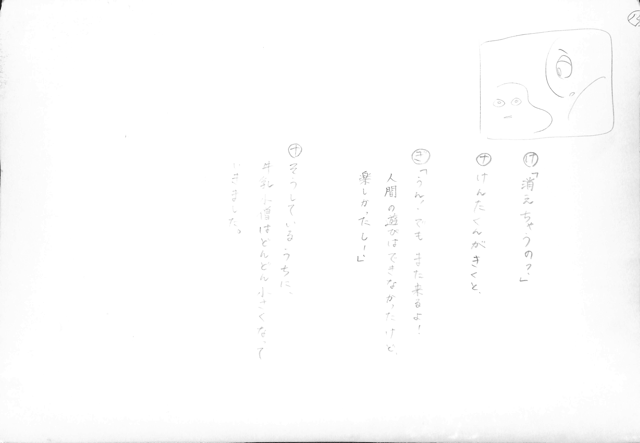 け「消えちゃうの?」
ナ けんたくんがきくと、
ぎ「うん!でも また来るよ!
人間の遊びはできなかったけど、
楽しかったしー!」
ナ そうしているうちに、
牛乳小僧はどんどん小さくなって
いきました。